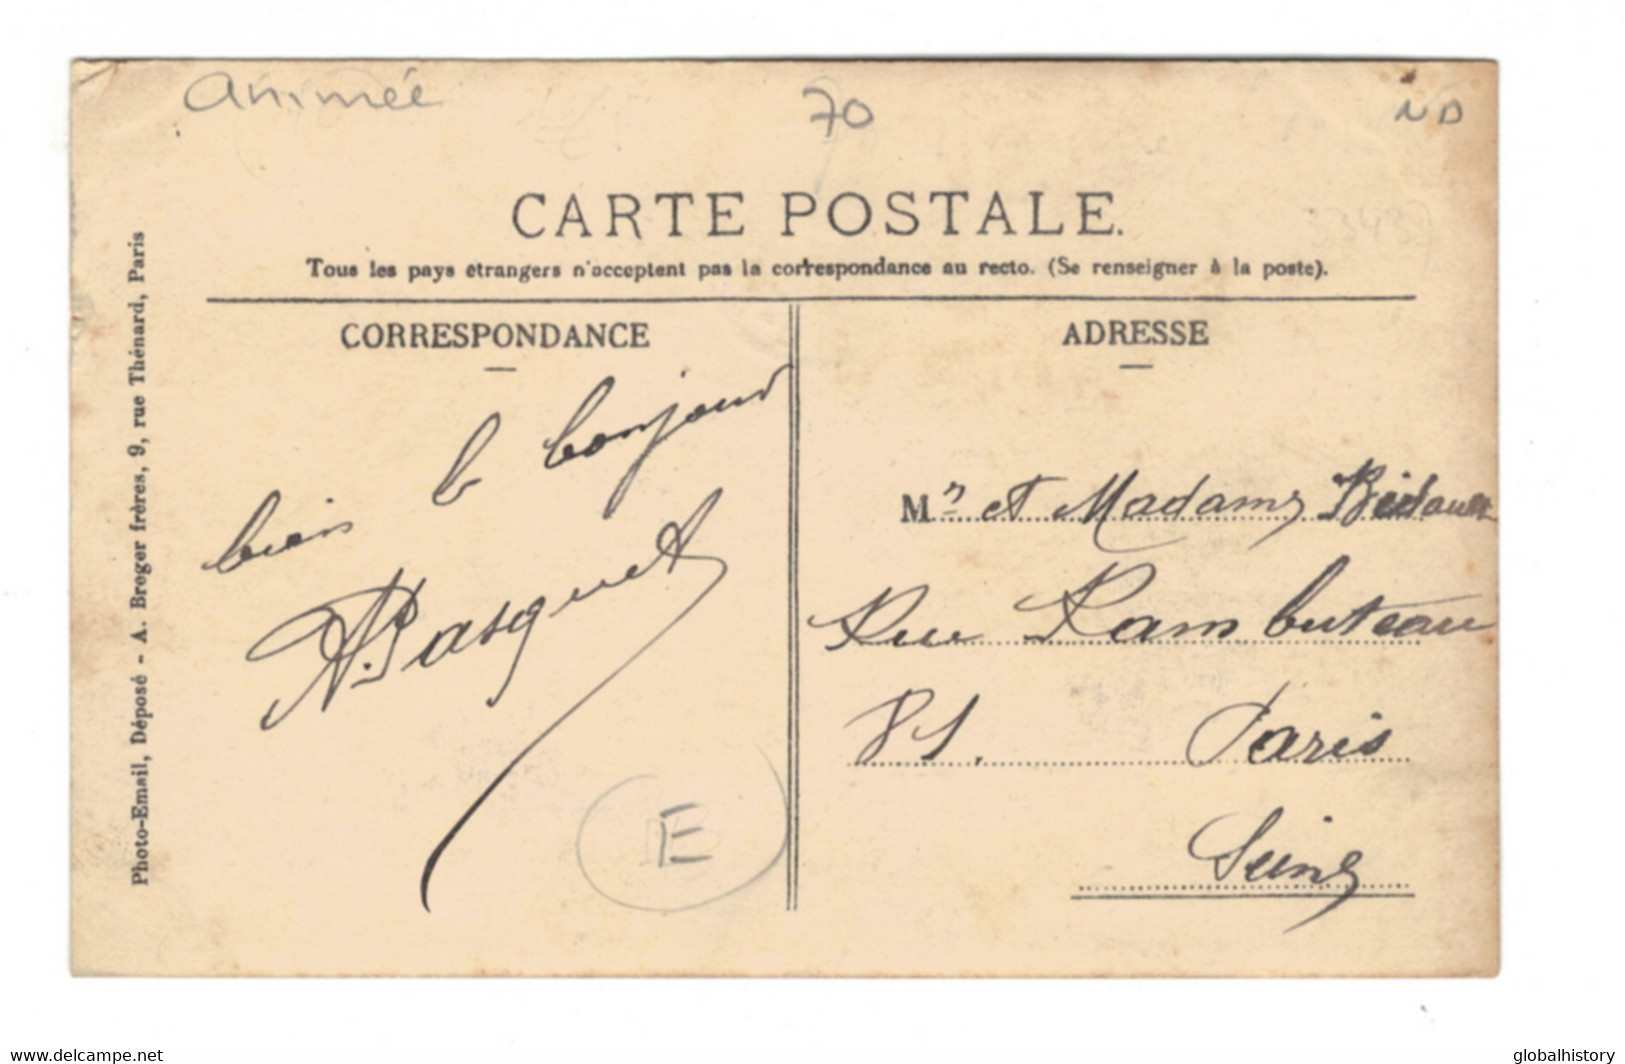 animée
70
ND
33437
CARTE POSTALE.
Tous les pays étrangers n'acceptent pas la correspondance au recto. (Se renseigner à la poste).
CORRESPONDANCE
bien le bonjour
A. Pasquet
E
Photo-Email, Déposé - A. Breger frères, 9, rue Thénard, Paris
ADRESSE
Mr et Madame
Rue Rambuteau
81. Paris
Seine
www.delcampe.net
globalhistory